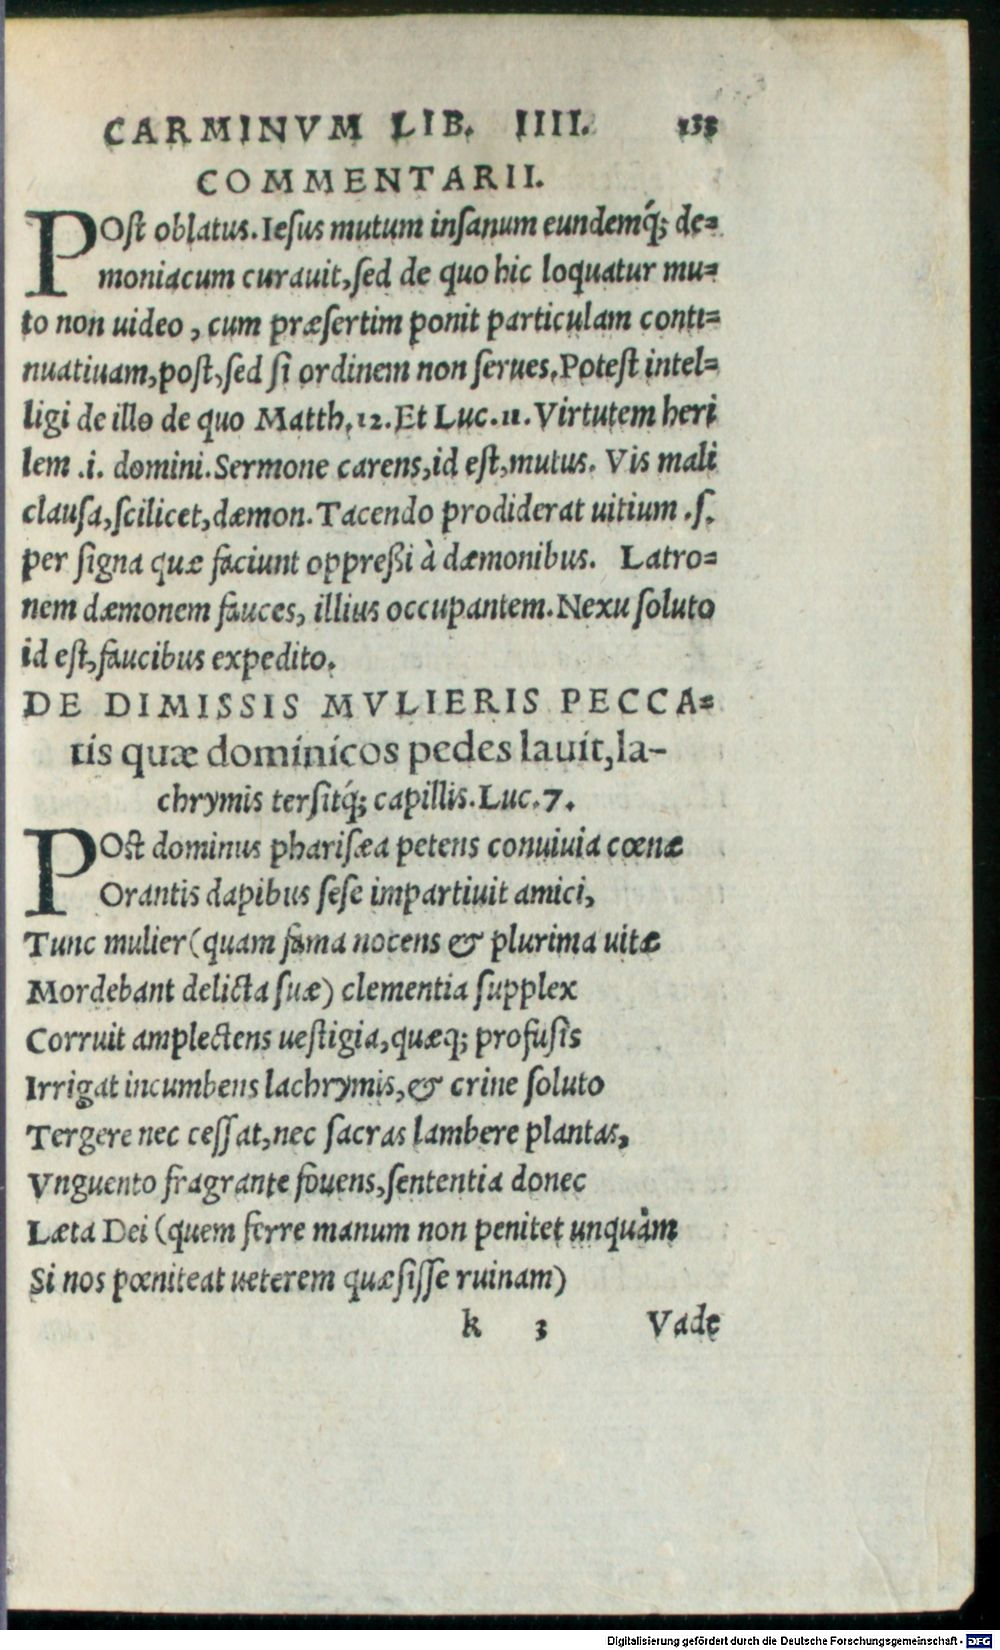 CARMINVM LIB. IIII. 133
COMMENTARII.
POst oblatus. Iesus mutum insanum eundemq́; de=
moniacum curauit, sed de quo hic loquatur mu=
to non uideo, cum præsertim ponit particulam conti=
nuatiuam, post, sed si ordinem non serues. Potest intel=
ligi de illo de quo Matth. 12. Et Luc. 11. Virtutem heri
lem .i. domini. Sermone carens, id est, mutus. Vis mali
clausa, scilicet, dæmon. Tacendo prodiderat uitium .s.
per signa quæ faciunt oppreßi à dæmonibus. Latro=
nem dæmonem fauces, illius occupantem. Nexu soluto
id est, faucibus expedito.
DE DIMISSIS MVLIERIS PECCA=
tis quæ dominicos pedes lauit, la-
chrymis tersitq́; capillis. Luc. 7.
POst dominus pharisæa petens conuiuia cœnæ
Orantis dapibus sese impartiuit amici,
Tunc mulier (quam fama nocens & plurima uitæ
Mordebant delicta suæ) clementia supplex
Corruit amplectens uestigia, quæq; profusis
Irrigat incumbens lachrymis, & crine soluto
Tergere nec cessat, nec sacras lambere plantas,
Vnguento fragrante fouens, sententia donec
Læta Dei (quem ferre manum non penitet unquàm
Si nos pœniteat ueterem quæsisse ruinam)
k 3 Vade
Digitalisierung gefördert durch die Deutsche Forschungsgemeinschaft - DFG